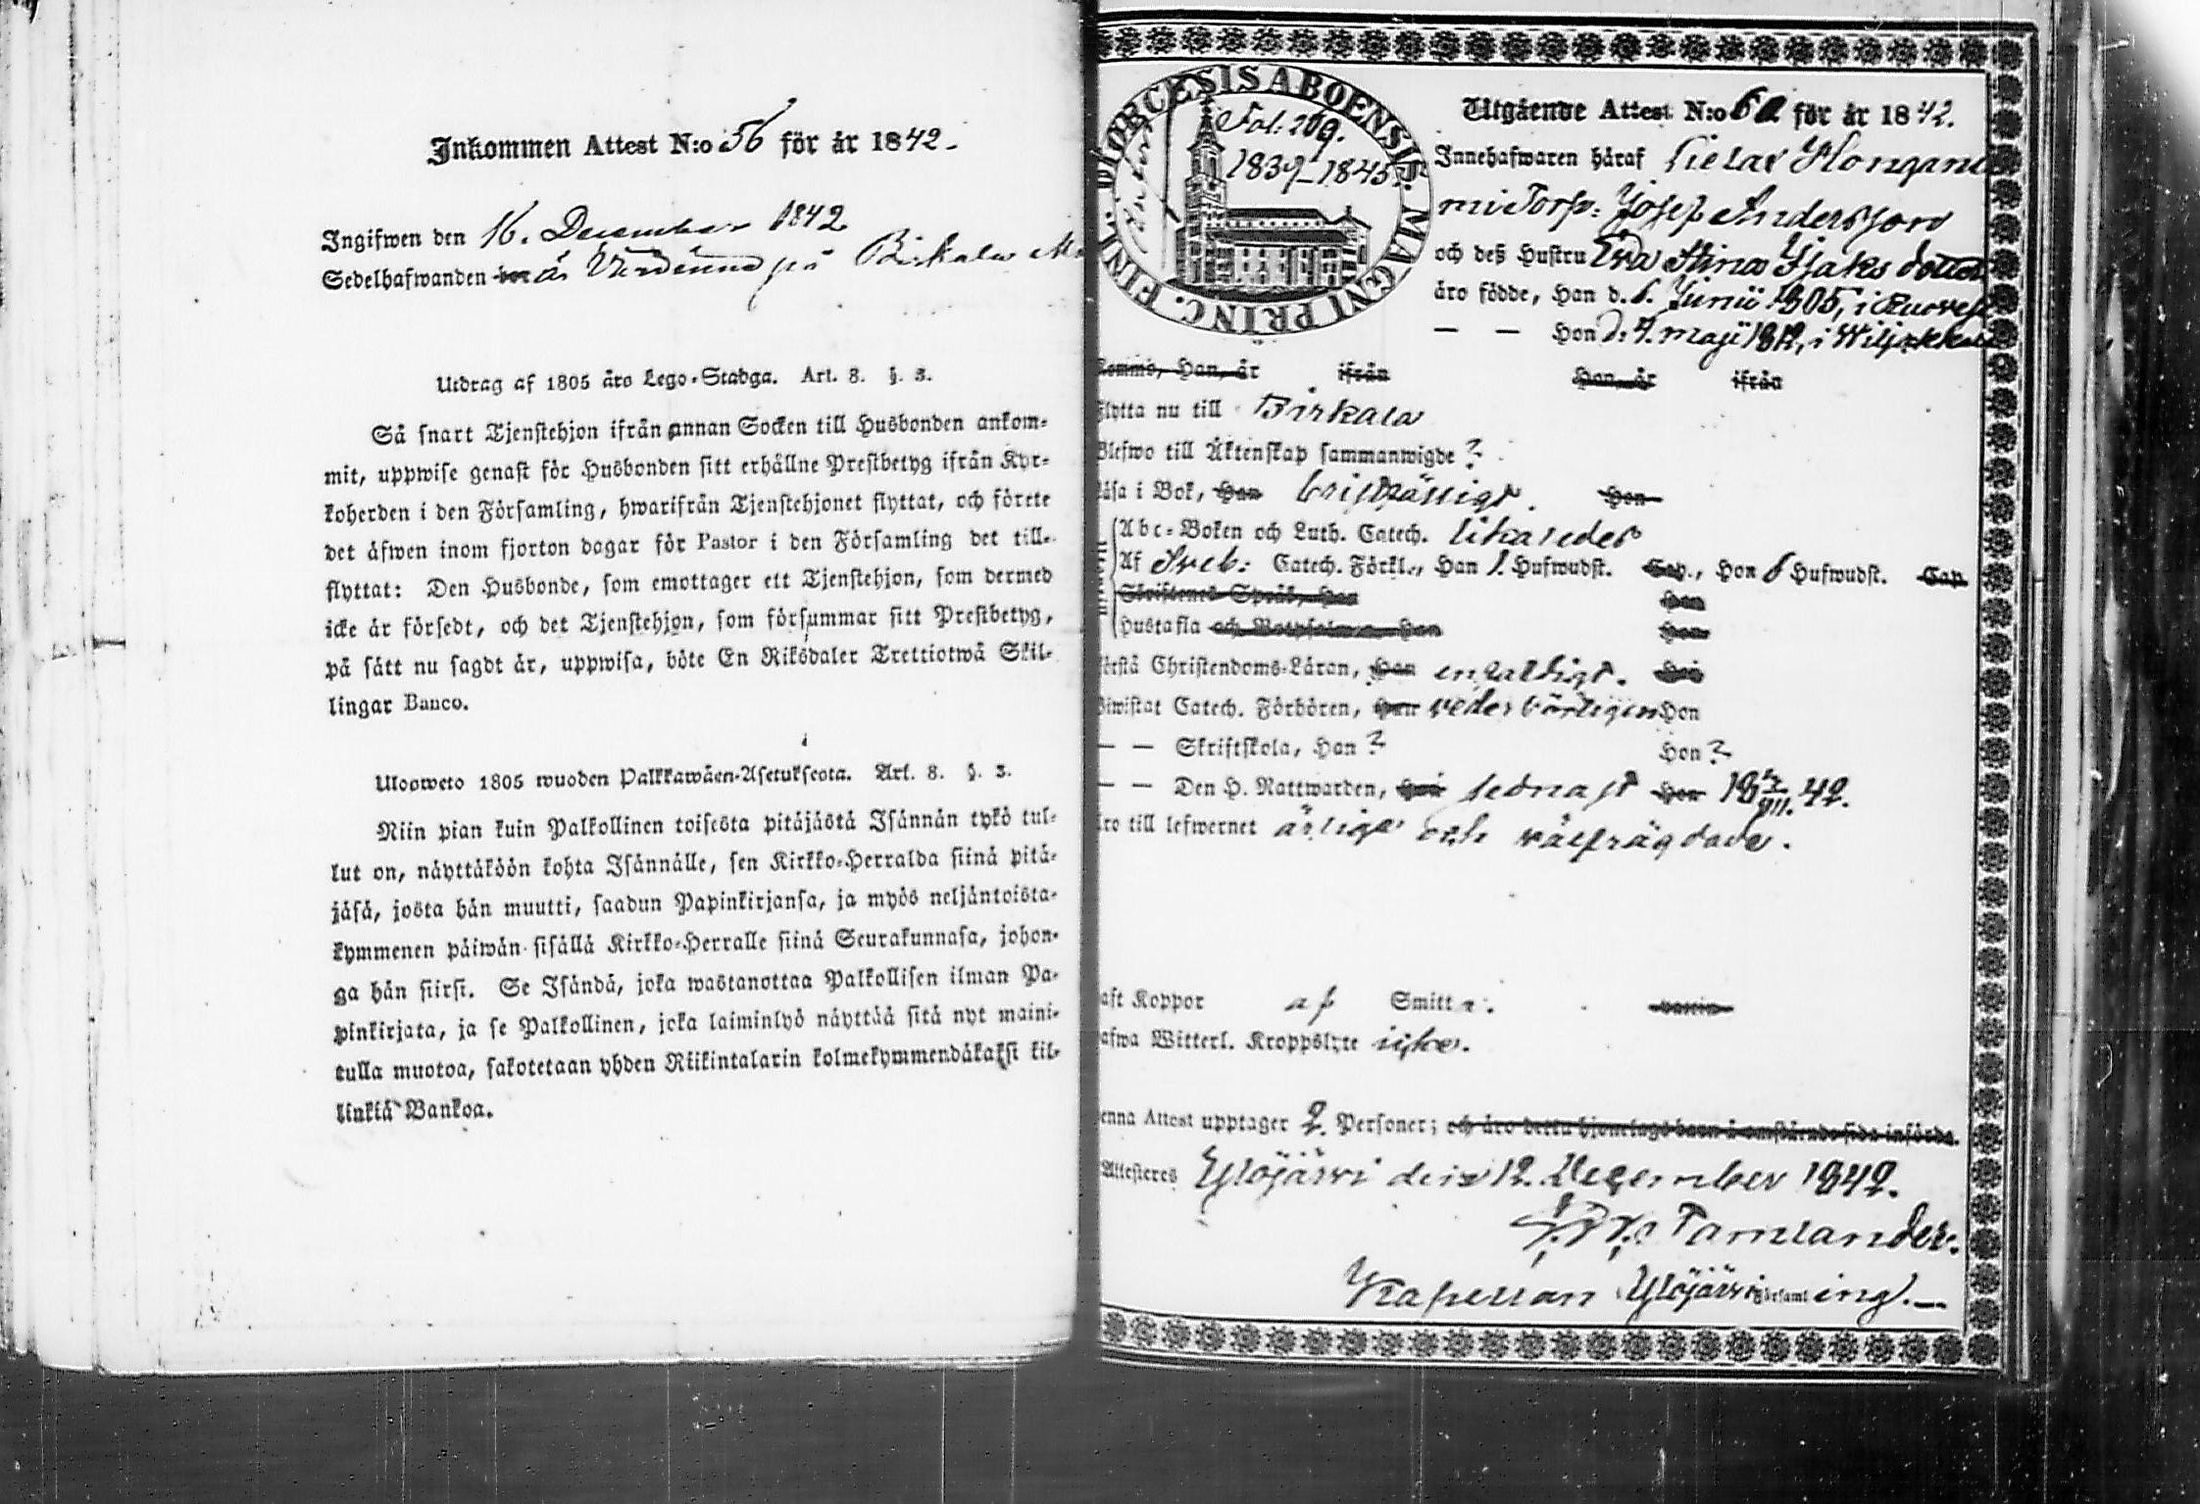 Inkommen Attest N:o 56 för år 1842.
Ingifwen den 16. December 1842
Sedelhafwanden bor är på Birkala
Utdrag af 1805 års Lego-Stadga. Art. 8. §. 3.
Så snart Tjenstehjon ifrån annan Socken till Husbonden ankom-
mit, uppwise genast för Husbonden sitt erhållne Prestbetyg ifrån Kyr-
koherden i den Församling, hwarifrån Tjenstehjonet flyttat, och förete
det äfwen inom fjorton dagar för Pastor i den Församling det till-
flyttat: Den Husbonde, som emottager ett Tjenstehjon, som dermed
icke är försedt, och det Tjenstehjon, som försummar sitt Prestbetyg,
på sätt nu sagdt är, uppwisa, böte En Riksdaler Trettiotwå Skil-
lingar Banco.
Ulosweto 1805 wuoden Palkkawäen-Asetuksesta. Art. 8. §. 3.
Niin pian kuin Palkollinen toisesta pitäjästä Isännän tykö tul-
lut on, näyttäköön kohta Isännälle, sen Kirkko-Herralda siinä pitä-
jäsä, josta hän muutti, saadun Papinkirjansa, ja myös neljäntoista-
kymmenen päiwän sisällä Kirkko-Herralle siinä Seurakunnasa, johon-
ga hän siirsi. Se Isändä, joka wastanottaa Palkollisen ilman Pa-
pinkirjata, ja se Palkollinen, joka laiminlyö näyttää sitä nyt maini-
tulla muotoa, sakotetaan yhden Riikintalarin kolmekymmendäkaksi kil-
linkiä Bankoa.
DIOECESIS ABOENSIS. MAGNI PRINC. FINL.
Fol: 209.
1839–1845.
Utgående Attest N:o 60 för år 1842.
Innehafwaren häraf
Torp: Josef Andersson
och deß Hustru Eva Stina Isaks dotter
äro födde, Han d. 6. Junii 1805, i Ruovesi
— — Hon d: 4. Maji 1812, i Wiljakkala
Komme, Han, år ifrån Hon, år ifrån
flytta nu till Birkala
Blefwo till Äktenskap sammanwigde ?
läsa i Bok, Han bristfälligt. Hon
Abc-Boken och Luth. Catech. likaledes
Af Sveb: Catech. Förkl., Han 1. Hufwudst. Cap., Hon 6 Hufwudst. Cap
Skriftenes Språk, Han Hon
Hustafla och Botpsalmen, Han Hon
förstå Christendoms-Läran, Han enfaldigt. Hon
Biwistat Catech. Förhören, Han vederbörligen Hon
— — Skriftskola, Han ? Hon ?
— — Den H. Nattwarden, Han sednast Hon 42.
äro till lefwernet ärlige och välfrägdade.
aft Koppor af Smitta.
afwa Witterl. Kroppslyte icke.
enna Attest upptager 2. Personer; och äro detta hjonelags barn å omstående sida införda.
Attesteras Ylöjärvi den 12. December 1842.
Tamlander.
Kapellan i Ylöjärvi Församling.—